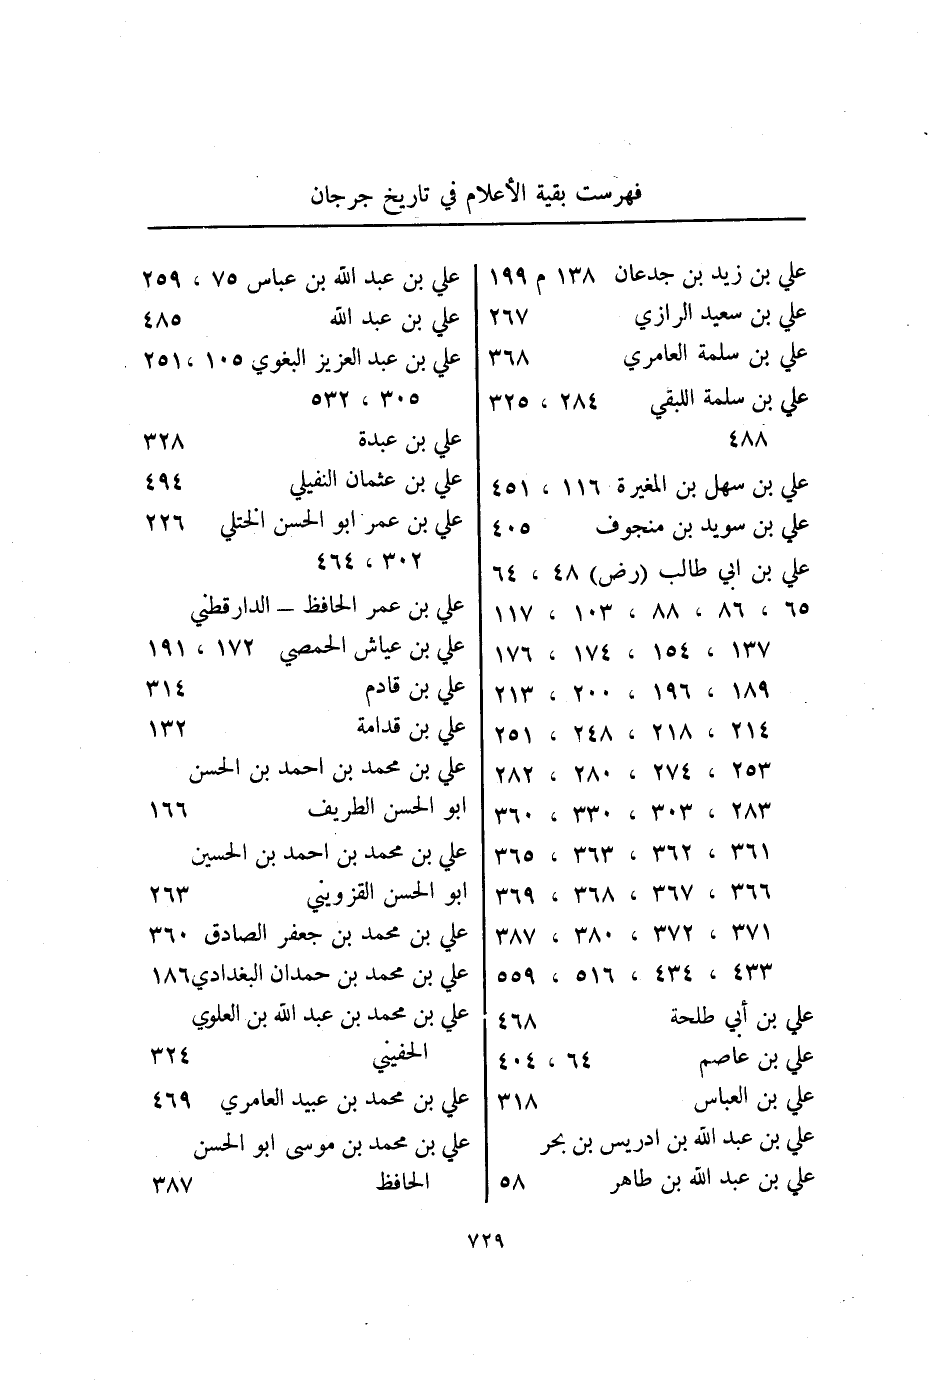 فهرست بقية الأعلام في تاريخ جرجان
علي بن زيد بن جدعان ١٣٨ م ١٩٩
علي بن سعيد الرازي ٢٦٧
علي بن سلمة العامري ٣٦٨
علي بن سلمة اللبقي ٢٨٤ ، ٣٢٥
٤٨٨
علي بن سهل بن المغيرة ١١٦ ، ٤٥١
علي بن سويد بن منجوف ٤٠٥
علي بن ابي طالب (رض) ٤٨ ، ٦٤
٦٥ ، ٨٦ ، ٨٨ ، ١٠٣ ، ١١٧
١٣٧ ، ١٥٤ ، ١٧٤ ، ١٧٦
١٨٩ ، ١٩٦ ، ٢٠٠ ، ٢١٣
٢١٤ ، ٢١٨ ، ٢٤٨ ، ٢٥١
٢٥٣ ، ٢٧٤ ، ٢٨٠ ، ٢٨٢
٢٨٣ ، ٣٠٣ ، ٣٣٠ ، ٣٦٠
٣٦١ ، ٣٦٢ ، ٣٦٣ ، ٣٦٥
٣٦٦ ، ٣٦٧ ، ٣٦٨ ، ٣٦٩
٣٧١ ، ٣٧٢ ، ٣٨٠ ، ٣٨٧
٤٣٣ ، ٤٣٤ ، ٥١٦ ، ٥٥٩
علي بن أبي طلحة ٤٦٨
علي بن عاصم ٦٤ ، ٤٠٤
علي بن العباس ٣١٨
علي بن عبد الله بن ادريس بن بحر
علي بن عبد الله بن طاهر ٥٨
علي بن عبد الله بن عباس ٧٥ ، ٢٥٩
علي بن عبد الله ٤٨٥
علي بن عبد العزيز البغوي ١٠٥ ، ٢٥١
٣٠٥ ، ٥٣٢
علي بن عبدة ٣٢٨
علي بن عثمان النفيلي ٤٩٤
علي بن عمر ابو الحسن الختلي ٢٢٦
٣٠٢ ، ٤٦٤
علي بن عمر الحافظ – الدارقطني
علي بن عياش الحمصي ١٧٢ ، ١٩١
علي بن قادم ٣١٤
علي بن قدامة ١٣٢
علي بن محمد بن احمد بن الحسن
ابو الحسن الطريف ١٦٦
علي بن محمد بن احمد بن الحسين
ابو الحسن القزويني ٢٦٣
علي بن محمد بن جعفر الصادق ٣٦٠
علي بن محمد بن حمدان البغدادي ١٨٦
علي بن محمد بن عبد الله بن العلوي
الحفيني ٣٢٤
علي بن محمد بن عبيد العامري ٤٦٩
علي بن محمد بن موسى ابو الحسن
الحافظ ٣٨٧
٧٢٩